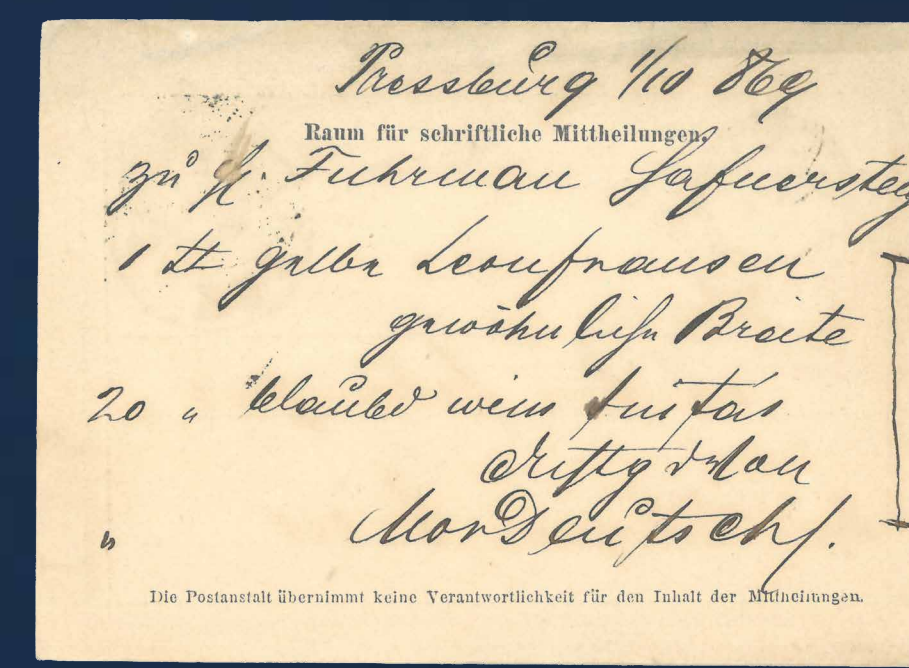 Pressburg 1/10 869
Raum für schriftliche Mittheilungen.
zu H. Fuhrman Hafnersteg
1 ℔ gelbe Leonfransen
gewöhnliche Breite
20 "
"
Mor Deutsch
Die Postanstalt übernimmt keine Verantwortlichkeit für den Inhalt der Mittheilungen.